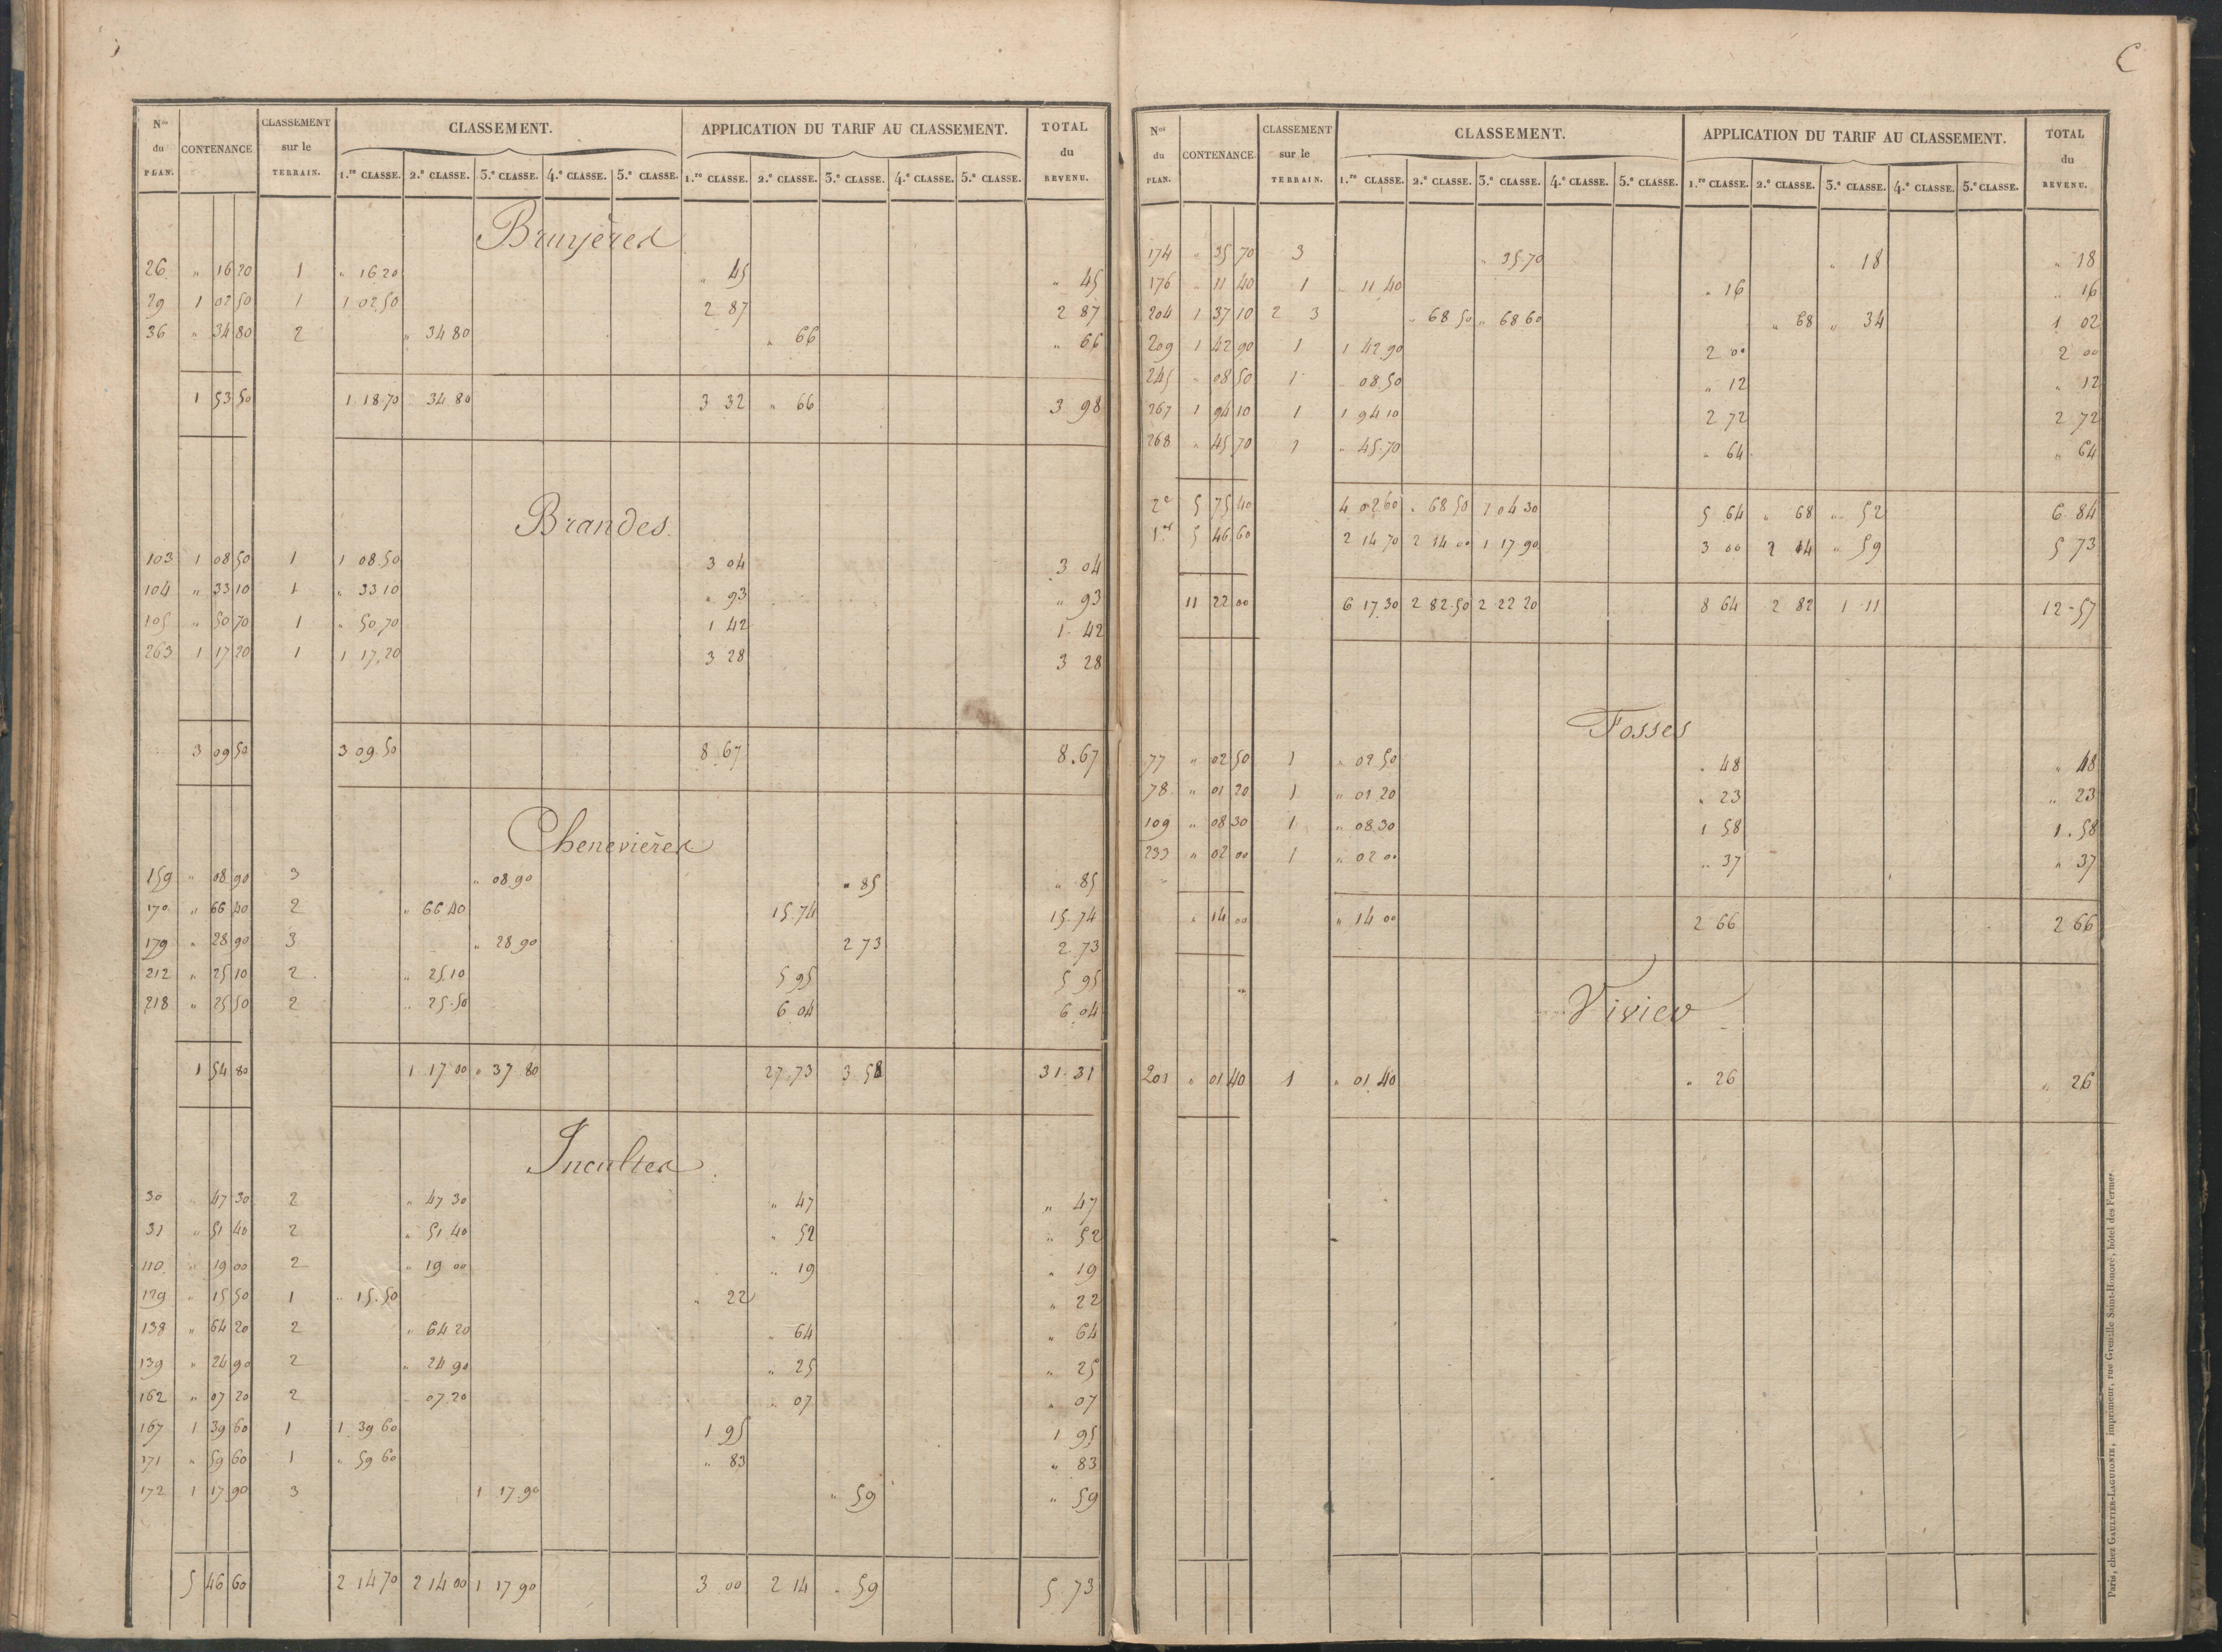 N.os du PLAN. CONTENANCE CLASSEMENT sur le TERRAIN. CLASSEMENT. APPLICATION DU TARIF AU CLASSEMENT. TOTAL du REVENU.
1.re CLASSE. 2.e CLASSE. 3.e CLASSE. 4.e CLASSE. 5.e CLASSE. 1.re CLASSE. 2.e CLASSE. 3.e CLASSE. 4.e CLASSE. 5.e CLASSE.
Bruyères
26 " 16 20 1 " 16 20 " 45 " 45
29 1 02 50 1 1 02 50 2 87 2 87
36 " 34 80 2 " 34 80 " 66 " 66
1 53 50 1 18 70 " 34 80 3 32 " 66 3 98
Brandes
103 1 08 50 1 1 08 50 3 04 3 04
104 " 33 10 1 " 33 10 " 93 " 93
105 " 50 70 1 " 50 70 1 42 1 42
263 1 17 20 1 1 17 20 3 28 3 28
3 09 50 3 09 50 8 67 8.67
Chenevières
159 " 08 90 3 " 08 90 " 85 " 85
170 " 66 40 2 " 66 40 15.74 15.74
179 " 28 90 3 " 28 90 2 73 2.73
212 " 25 10 2 " 25 10 5 95 5 95
218 " 25 50 2 " 25.50 6 04 6 04
1 54 80 1 17 00 " 37 80 27.73 3 58 31.31
Incultes
30 " 47 30 2 " 47 30 " 47 " 47
31 " 51 40 2 " 51 40 " 52 " 52
110 " 19 00 2 " 19 00 " 19 " 19
129 " 15 50 1 " 15.50 " 22 " 22
138 " 64 20 2 " 64 20 " 64 " 64
139 " 24 90 2 " 24 90 " 25 " 25
162 " 07 20 2 " 07.20 " 07 " 07
167 1 39 60 1 1 39 60 1 95 1 95
171 " 59 60 1 " 59 60 " 83 " 83
172 1 17 90 3 1 17.90 " 59 " 59
5 46 60 2 14 70 2 14 00 1 17 90 3 00 2 14 " 59 5.73
C
N.os du PLAN. CONTENANCE CLASSEMENT sur le TERRAIN. CLASSEMENT. APPLICATION DU TARIF AU CLASSEMENT. TOTAL du REVENU.
1.re CLASSE. 2.e CLASSE. 3.e CLASSE. 4.e CLASSE. 5.e CLASSE. 1.re CLASSE. 2.e CLASSE. 3.e CLASSE. 4.e CLASSE. 5.e CLASSE.
174 " 35 70 3 " 35.70 " 18 " 18
176 " 11 40 1 " 11 40 " 16 " 16
204 1 37 10 2 3 " 68 50 " 68 60 " 68 " 34 1 02
209 1 42 90 1 1 42 90 2 00 2 00
245 " 08 50 1 " 08.50 " 12 " 12
267 1 94 10 1 1 94 10 2 72 2 72
268 " 45 70 1 " 45.70 " 64 " 64
2e 5 75 40 4 02 60 " 68 50 1 04 30 5 64 " 68 " 52 6 84
1re 5 46 60 2 14 70 2 14 00 1 17 90 3 00 2 14 " 59 5 73
11 22 00 6 17 30 2 82 50 2 22 20 8 64 2 82 1 11 12-57
Fosses
77 " 02 50 1 " 02 50 " 48 " 48
78 " 01 20 1 " 01 20 " 23 " 23
109 " 08 30 1 " 08.30 1 58 1.58
233 " 02 00 1 " 02 00 " 37 " 37
" 14 00 " 14 00 2 66 2 66
Vivier
201 " 01 40 1 " 01 40 " 26 " 26
Paris, chez GAULTIER-LAGUIONIE, imprimeur, rue Grenelle Saint-Honoré, hôtel des Fermes